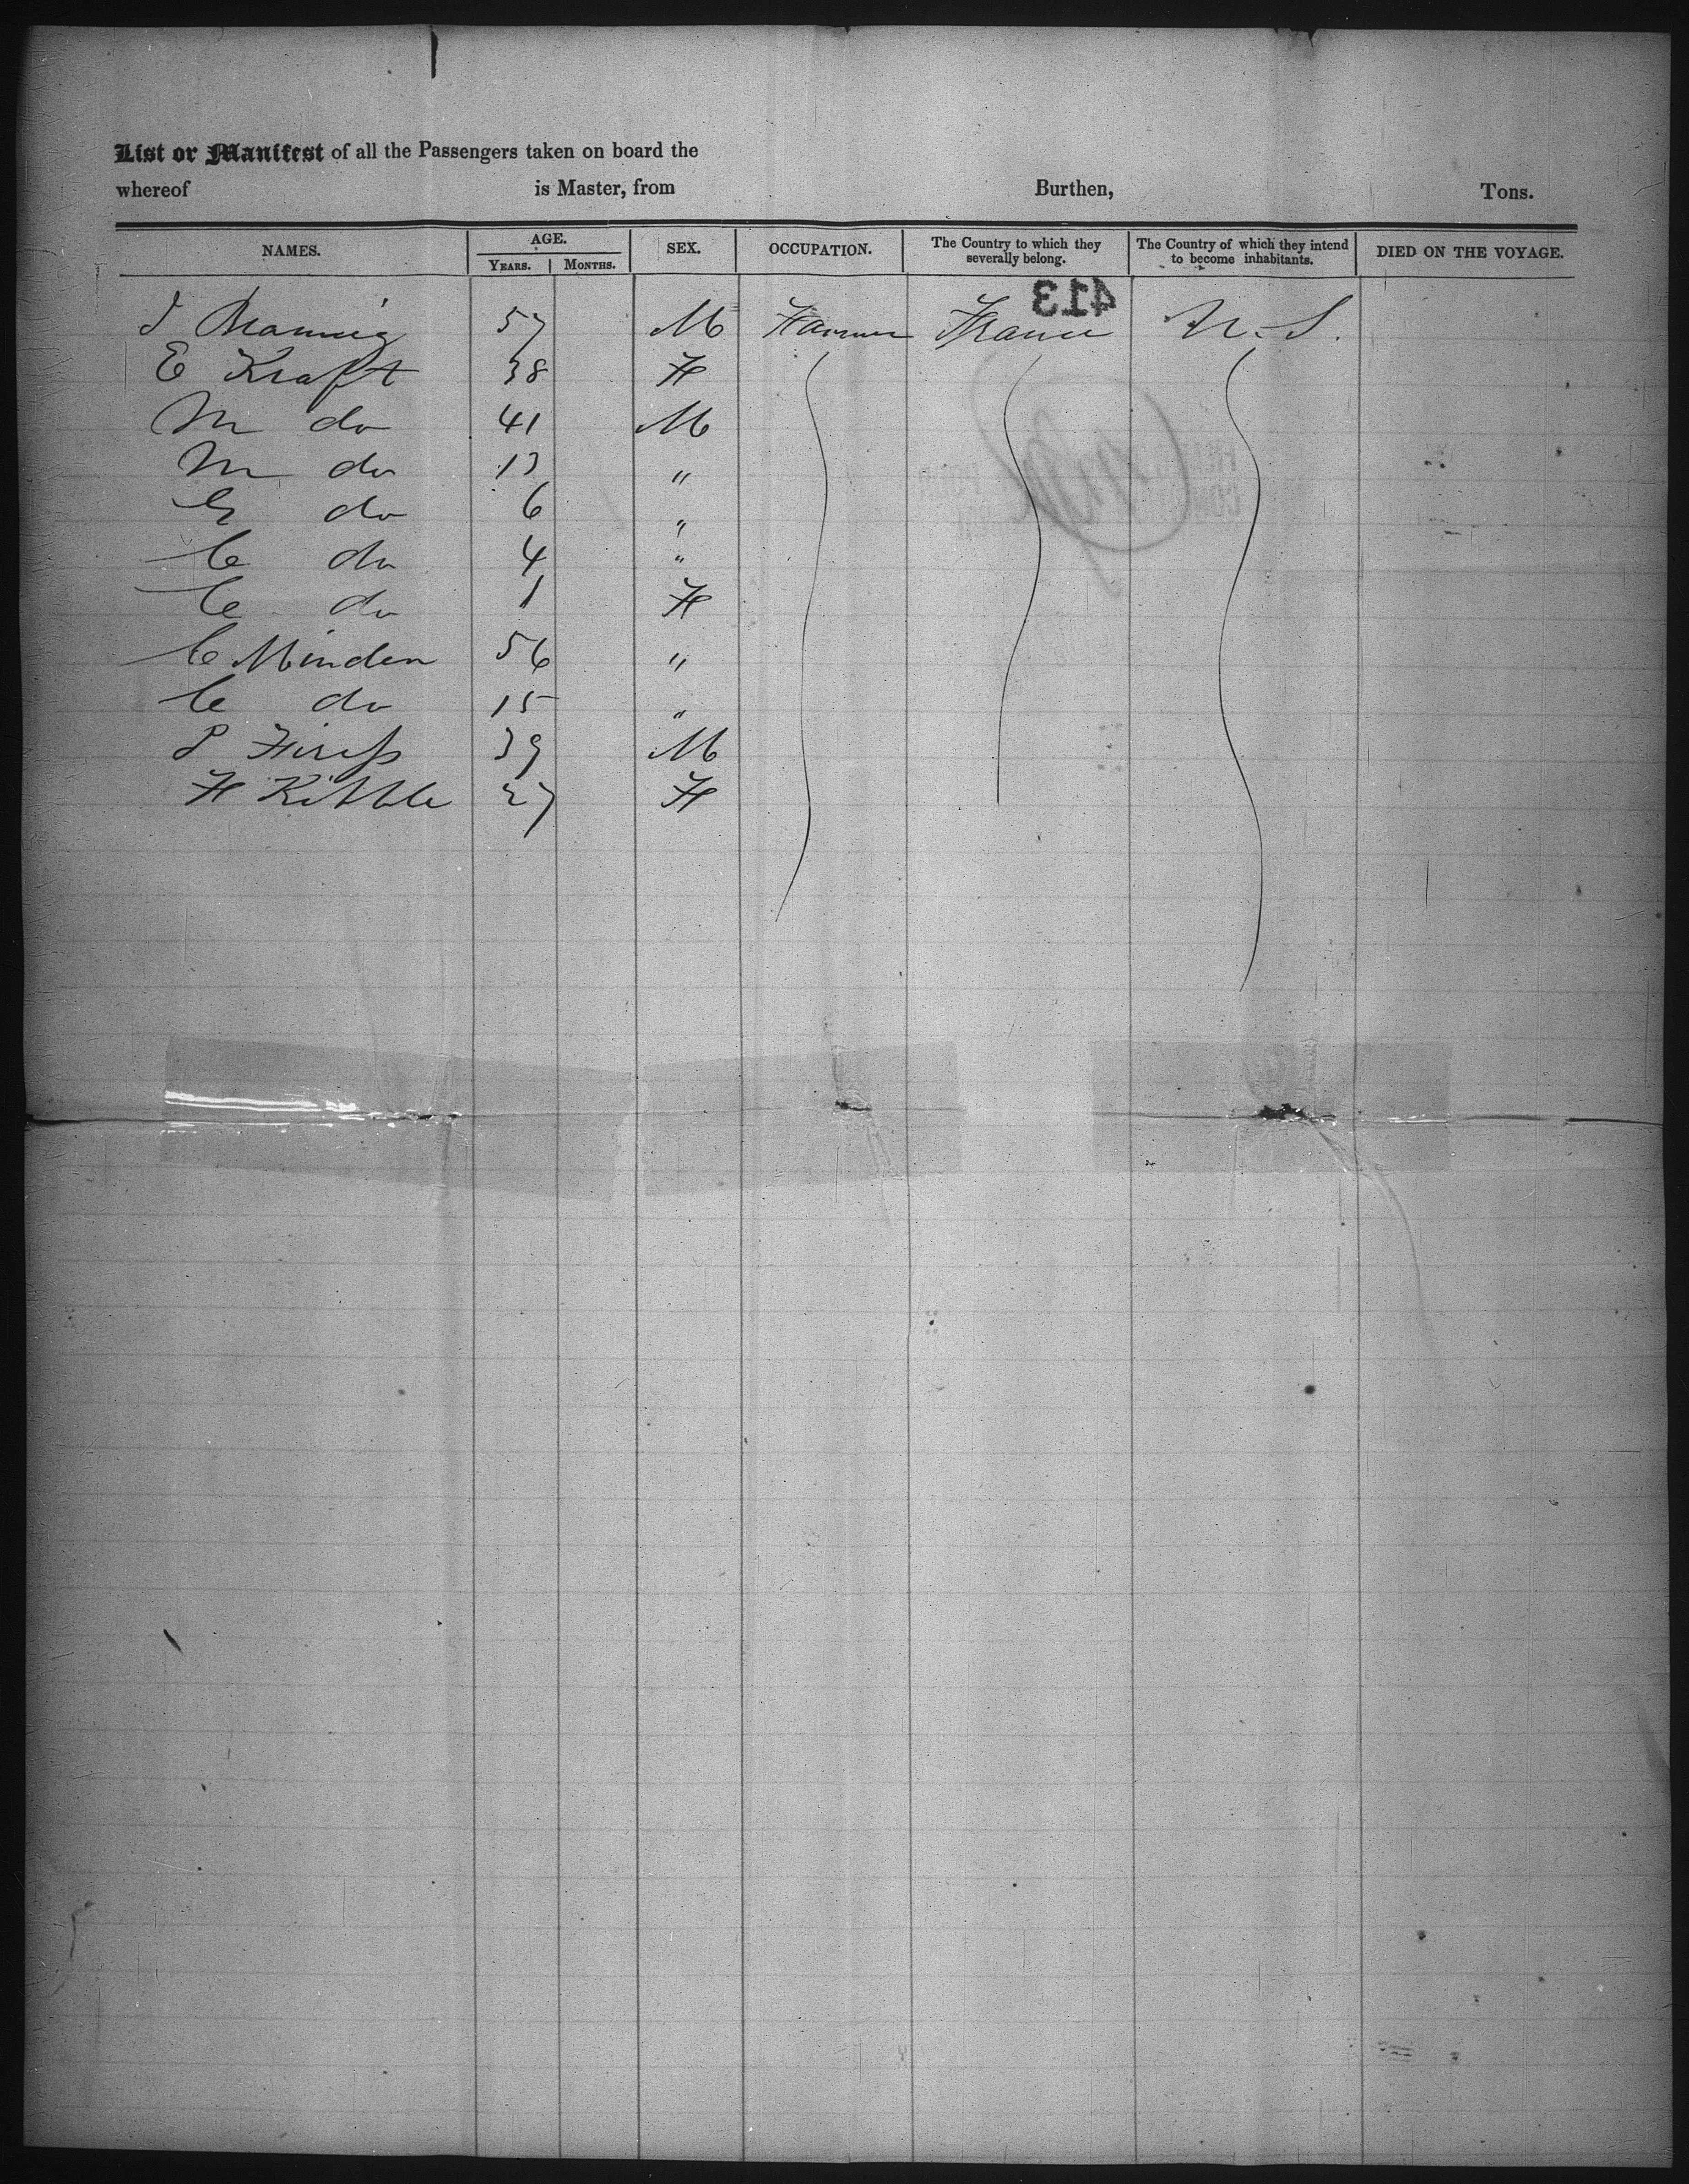 List or Manifest of all the Passengers taken on board the
whereof is Master, from Burthen, Tons.
NAMES. AGE. YEARS. MONTHS. SEX. OCCUPATION. The Country to which they severally belong. The Country of which they intend to become inhabitants. DIED ON THE VOYAGE.
413
J 57 M Farmer France U.S.
E Kraft 38 F
M do 41 M
M do 13 "
G do 6 "
C do 4 "
C do 1 F
C Minden 56 "
C do 15 "
P 39 M
F Kibble 27 F